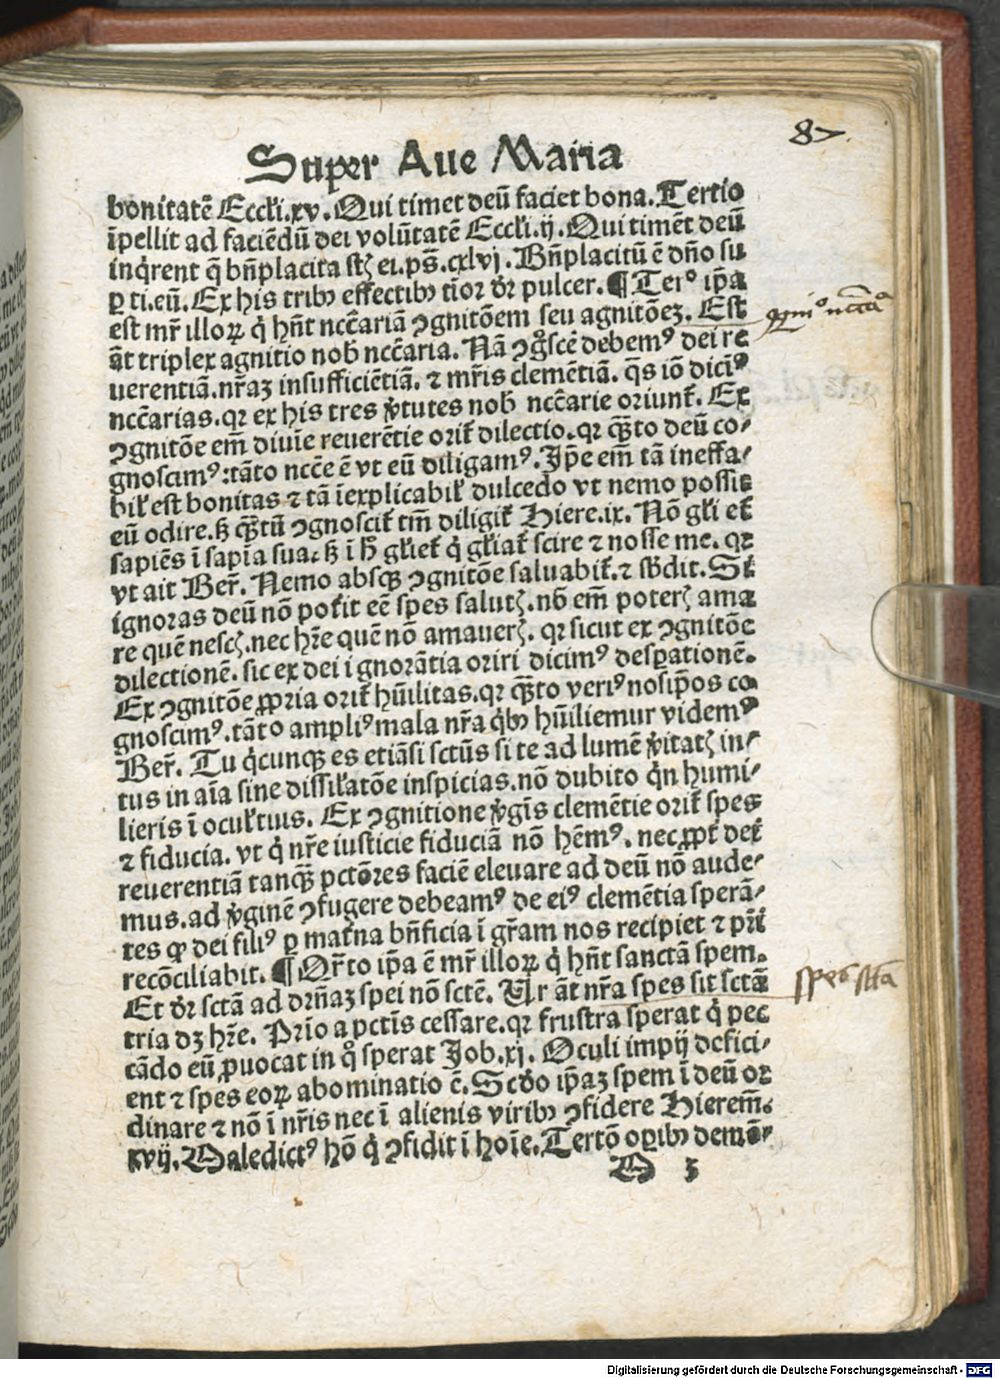 87.
Super Aue Maria
bonitatē Eccłi.xv. Qui timet deū faciet bona. Tertio
īpellit ad faciēdū dei volūtatē Eccłi.ij. Qui timēt deū
inq̇rent q̄ bn̄placita st̄ꝫ ei. ps̄. cxlvj. Bn̄placitū ē dn̄o su
ꝑ ti. eū. Ex his tribꝰ effectibꝰ
est mr̄ illoꝝ q̇ hn̄t ncc̄ariā ꝯgnitōem seu agnitōeꝫ. Est
āt triplex agnitio nob̄ ncc̄aria. Nā ꝯgs̄cē debemꝰ dei re
uerentiā. nr̄aꝫ insufficiētiā. ⁊ mr̄is clemētiā. q̄s iō dicīꝰ
ncc̄arias. qꝛ ex his tres v̓tutes nob̄ ncc̄arie oriunt̄. Ex
ꝯgnitōe em̄ diuīe reuerētie orit̄ dilectio. qꝛ qn̄to deū co⸗
gnoscimꝰ: tāto ncc̄e ē vt eū diligamꝰ. Ip̄e em̄ tā ineffa⸗
bił est bonitas ⁊ tā īexplicabił dulcedo vt nemo possit
eū odire. ꝫ qn̄tū ꝯgnoscit̄ tm̄ diligit̄ Hiere. ix. Nō głi et̄
sapiēs ī sapīa sua. ꝫ ī h̄ głiet̄ q̇ głiat̄ scire ⁊ nosse me. qꝛ
vt ait Ber̄. Nemo absqꝫ ꝯgnitōe saluabit̄. ⁊ sb̄dit. Si
ignoras deū nō pot̄it eē spes salutꝭ. nō em̄ poterꝭ ama
re quē nescꝭ. nec hr̄e quē nō amauerꝭ. qꝛ sicut ex ꝯgnitōe
dilectionē. sic ex dei ignorātia oriri dicimꝰ desꝑationē.
Ex ꝯgnitōe ꝓpria orit̄ hūilitas. qꝛ qn̄to veriꝰ nosip̄os co
gnoscimꝰ. tāto ampliꝰ mala nr̄a q̇bꝰ hūiliemur videmꝰ
Ber̄. Tu q̇cunqꝫ es etiāsi sctūs si te ad lumē v̓itatꝭ in⸗
tus in aīa sine dissiłatōe inspicias. nō dubito q̇n humi⸗
lieris ī ocułtuis. Ex ꝯgnitione v̓gīs clemētie orit̄ spes
⁊ fiducia. vt q̇ nr̄e iusticie fiduciā nō hēmꝰ. nec ꝓpt̄ dei
reuerentiā tanqꝫ pctōres faciē eleuare ad deū nō aude⸗
mus. ad v̓ginē ꝯfugere debeamꝰ de eiꝰ clemētia sperā⸗
tes ꝙ dei filiꝰ ꝑ mat̄na bn̄ficia ī gr̄am nos recipiet ⁊ pr̄i
recōciliabit. ¶ Qr̄to ip̄a ē mr̄ illoꝝ q̇ hn̄t sanctā spem.
Et dr̄ sctā ad dr̄n̄aꝫ spei nō sctē. Ut āt nr̄a spes sit sctā
tria dꝫ hr̄e. Prīo a pctīs cessare. qꝛ frustra sperat q̇ pec
cādo eū ꝓuocat in qº sperat Job. xj. Oculi impij defici⸗
ent ⁊ spes eoꝝ abominatio ē. Scd̄o ip̄aꝫ spem ī deū or
dinare ⁊ nō ī nr̄is nec ī alienis viribꝰ ꝯfidere Hierem̄.
xvij. Maledictꝰ hō q̇ ꝯfidit ī hoīe. Tertō oꝑibꝰ demō⸗
M 3
spes sctā
Digitalisierung gefördert durch die Deutsche Forschungsgemeinschaft - DFG